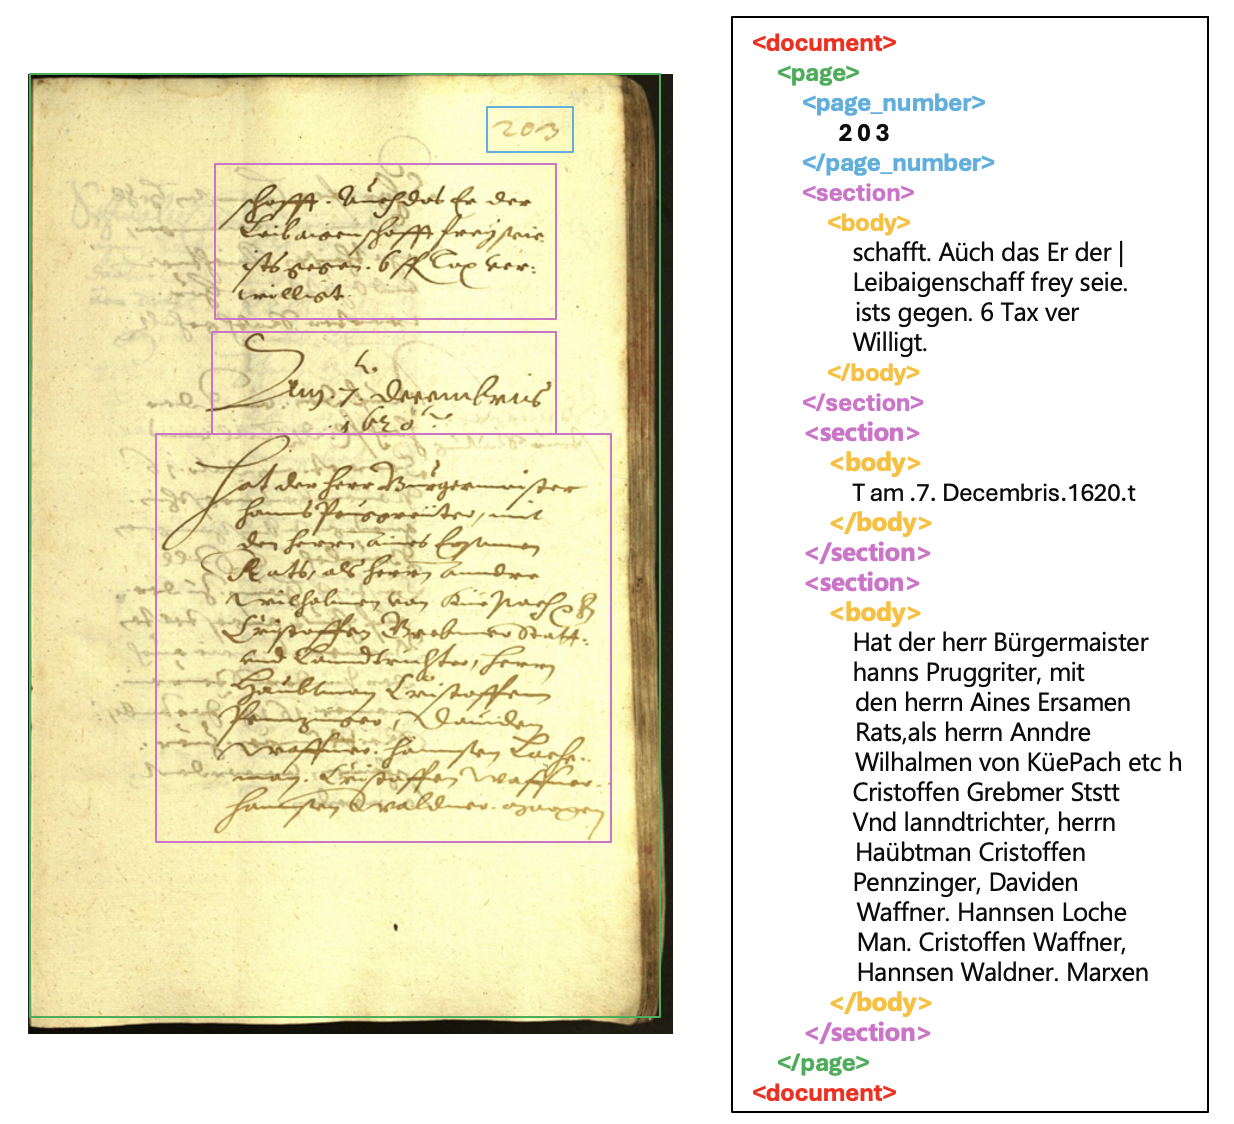 203
schafft. Aüch das Er der
Leibaigenschafft freÿ seie.
ists gegen. 6 Tax ver:
willigt.
Am .7. Decembris
1620
Hat der herr Bürgermaister
hanns Pruggreiter, mit
den herrn aines Ersamen
Rats, als herrn Anndre
Wilhalmen von KüePach
Cristoffen Grebmer Statt:
vnd Lanndtrichter, herrn
Haübtman Cristoffen
Pennzinger, Dauiden
Waffner. Hannsen Loche:
man. Cristoffen Waffner.
Hannsen Waldner. Marxen
<document>
<page>
<page_number>
2 0 3
</page_number>
<section>
<body>
schafft. Aüch das Er der |
Leibaigenschaff frey seie.
ists gegen. 6 Tax ver
Willigt.
</body>
</section>
<section>
<body>
T am .7. Decembris.1620.t
</body>
</section>
<section>
<body>
Hat der herr Bürgermaister
hanns Pruggriter, mit
den herrn Aines Ersamen
Rats,als herrn Anndre
Wilhalmen von KüePach etc h
Cristoffen Grebmer Ststt
Vnd lanndtrichter, herrn
Haübtman Cristoffen
Pennzinger, Daviden
Waffner. Hannsen Loche
Man. Cristoffen Waffner,
Hannsen Waldner. Marxen
</body>
</section>
</page>
<document>